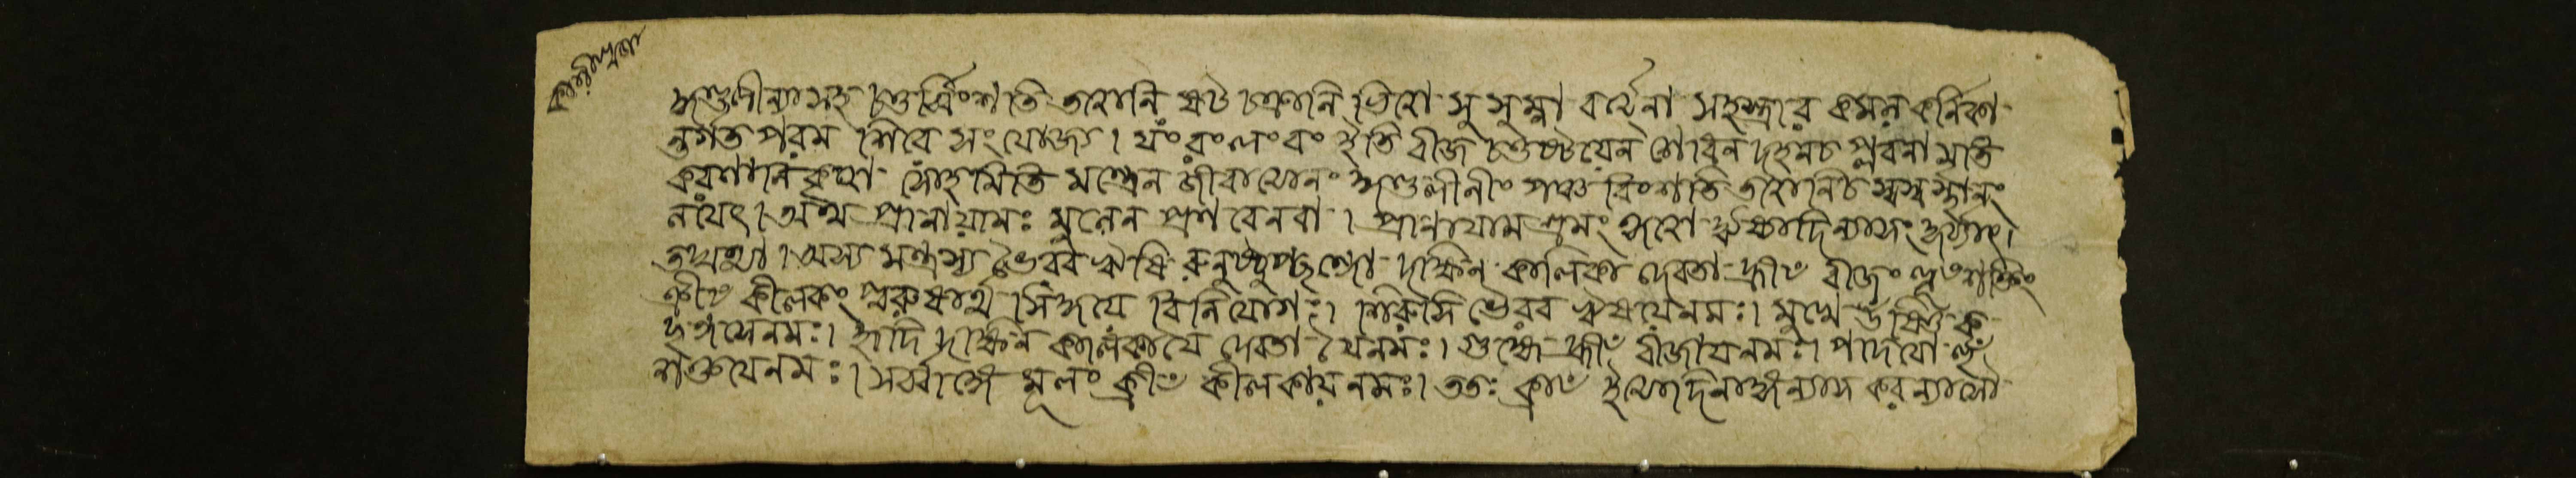 কালীপূজা
কুণ্ডলীন্যা সহ চতুর্ব্বিংশতি তত্বানি ষট চক্রানি ভিত্বা সুসুম্না বর্ত্মেনা সহস্রার কমল কর্নিকা
ন্তর্গত পরম শিবে সংযোজ্য। যং রং লং বং ইতি বীজ চতুষ্টয়েন শোষন দহনচ প্লাবনা মৃতি
করণানি কৃত্বা সোহমিতি মন্ত্রেন জীবাত্মানং কুণ্ডলীনীং পঞ্চ বিংশতি তত্বানিচ স্বস্ব স্থানং
নয়েৎ। অথ প্রানায়ামঃ মূলেন প্রণবেনবা। প্রানায়াম ত্রয়ং কৃত্বা ঋষ্যাদি ন্যাসং কুর্য্যাৎ।
তদ্যথা। অস্য মন্ত্রস্য ভৈরব ঋষি রুনুষ্টুপ্ছন্দো দক্ষিন কালিকা দেবতা হ্রীঁ বীজং হূঁ শক্তিং
ক্রীঁ কীলকং পুরুষার্থ সিদ্ধয়ে বিনিয়োগঃ। শিরসি ভৈরব ঋষয়েনমঃ। মুখে উষ্ণিক
ছন্দসেনমঃ। হৃদি দক্ষিন কালিকায়ৈ দেবতায়ৈনমঃ। গুহ্যে হ্রীঁ বীজায়নমঃ। পাদয়ো হূঁ
শক্তয়েনমঃ। সর্ব্বাঙ্গে মূলং ক্রীঁ কীলকায়নমঃ। ততঃ ক্রাঁ ইত্যাদিনাঙ্গন্যাস করন্যাসৌ